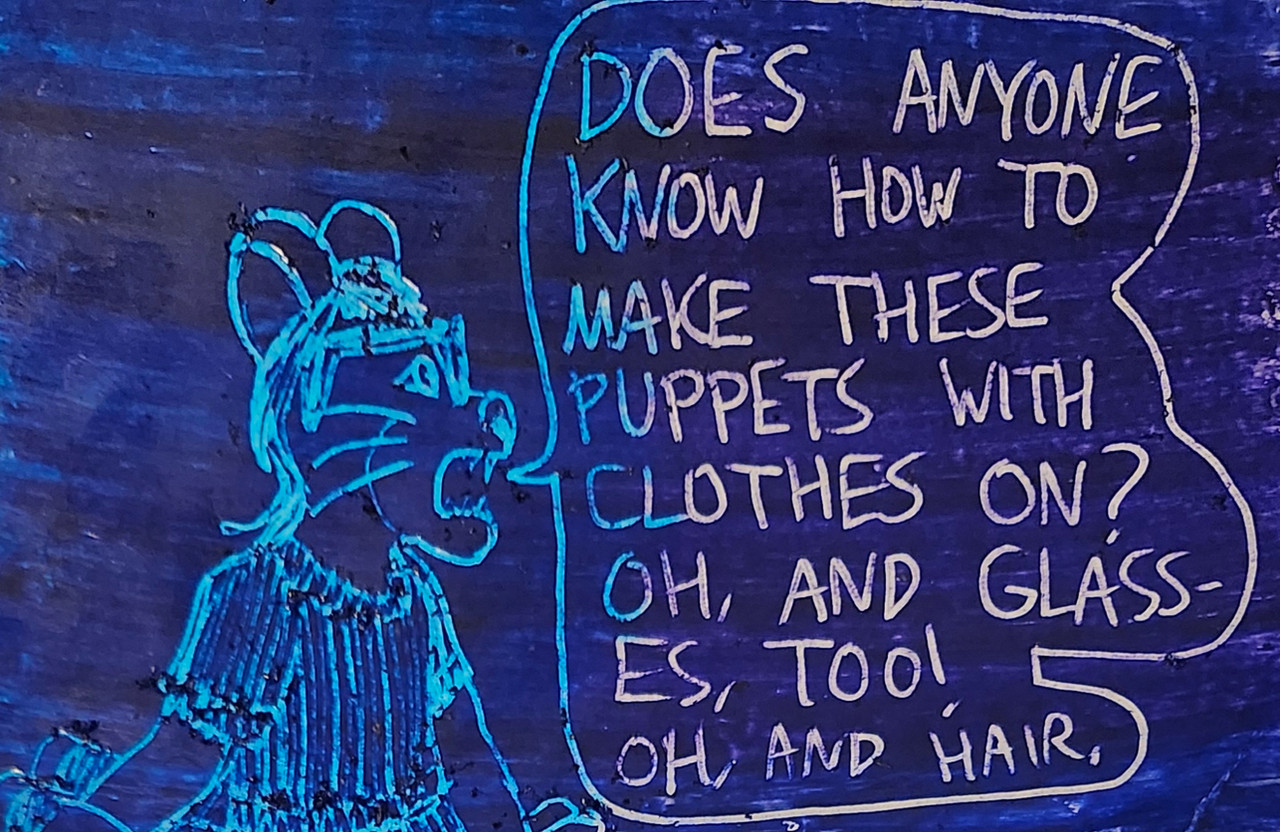 DOES ANYONE
KNOW HOW TO
MAKE THESE
PUPPETS WITH
CLOTHES ON?
OH, AND GLASS-
ES, TOO!
OH, AND HAIR.